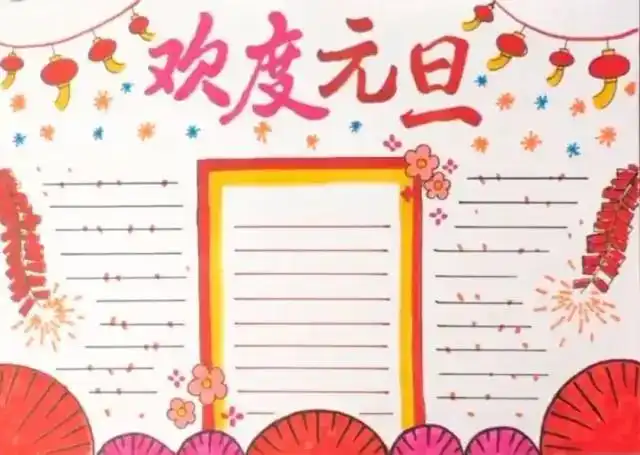 欢度元旦